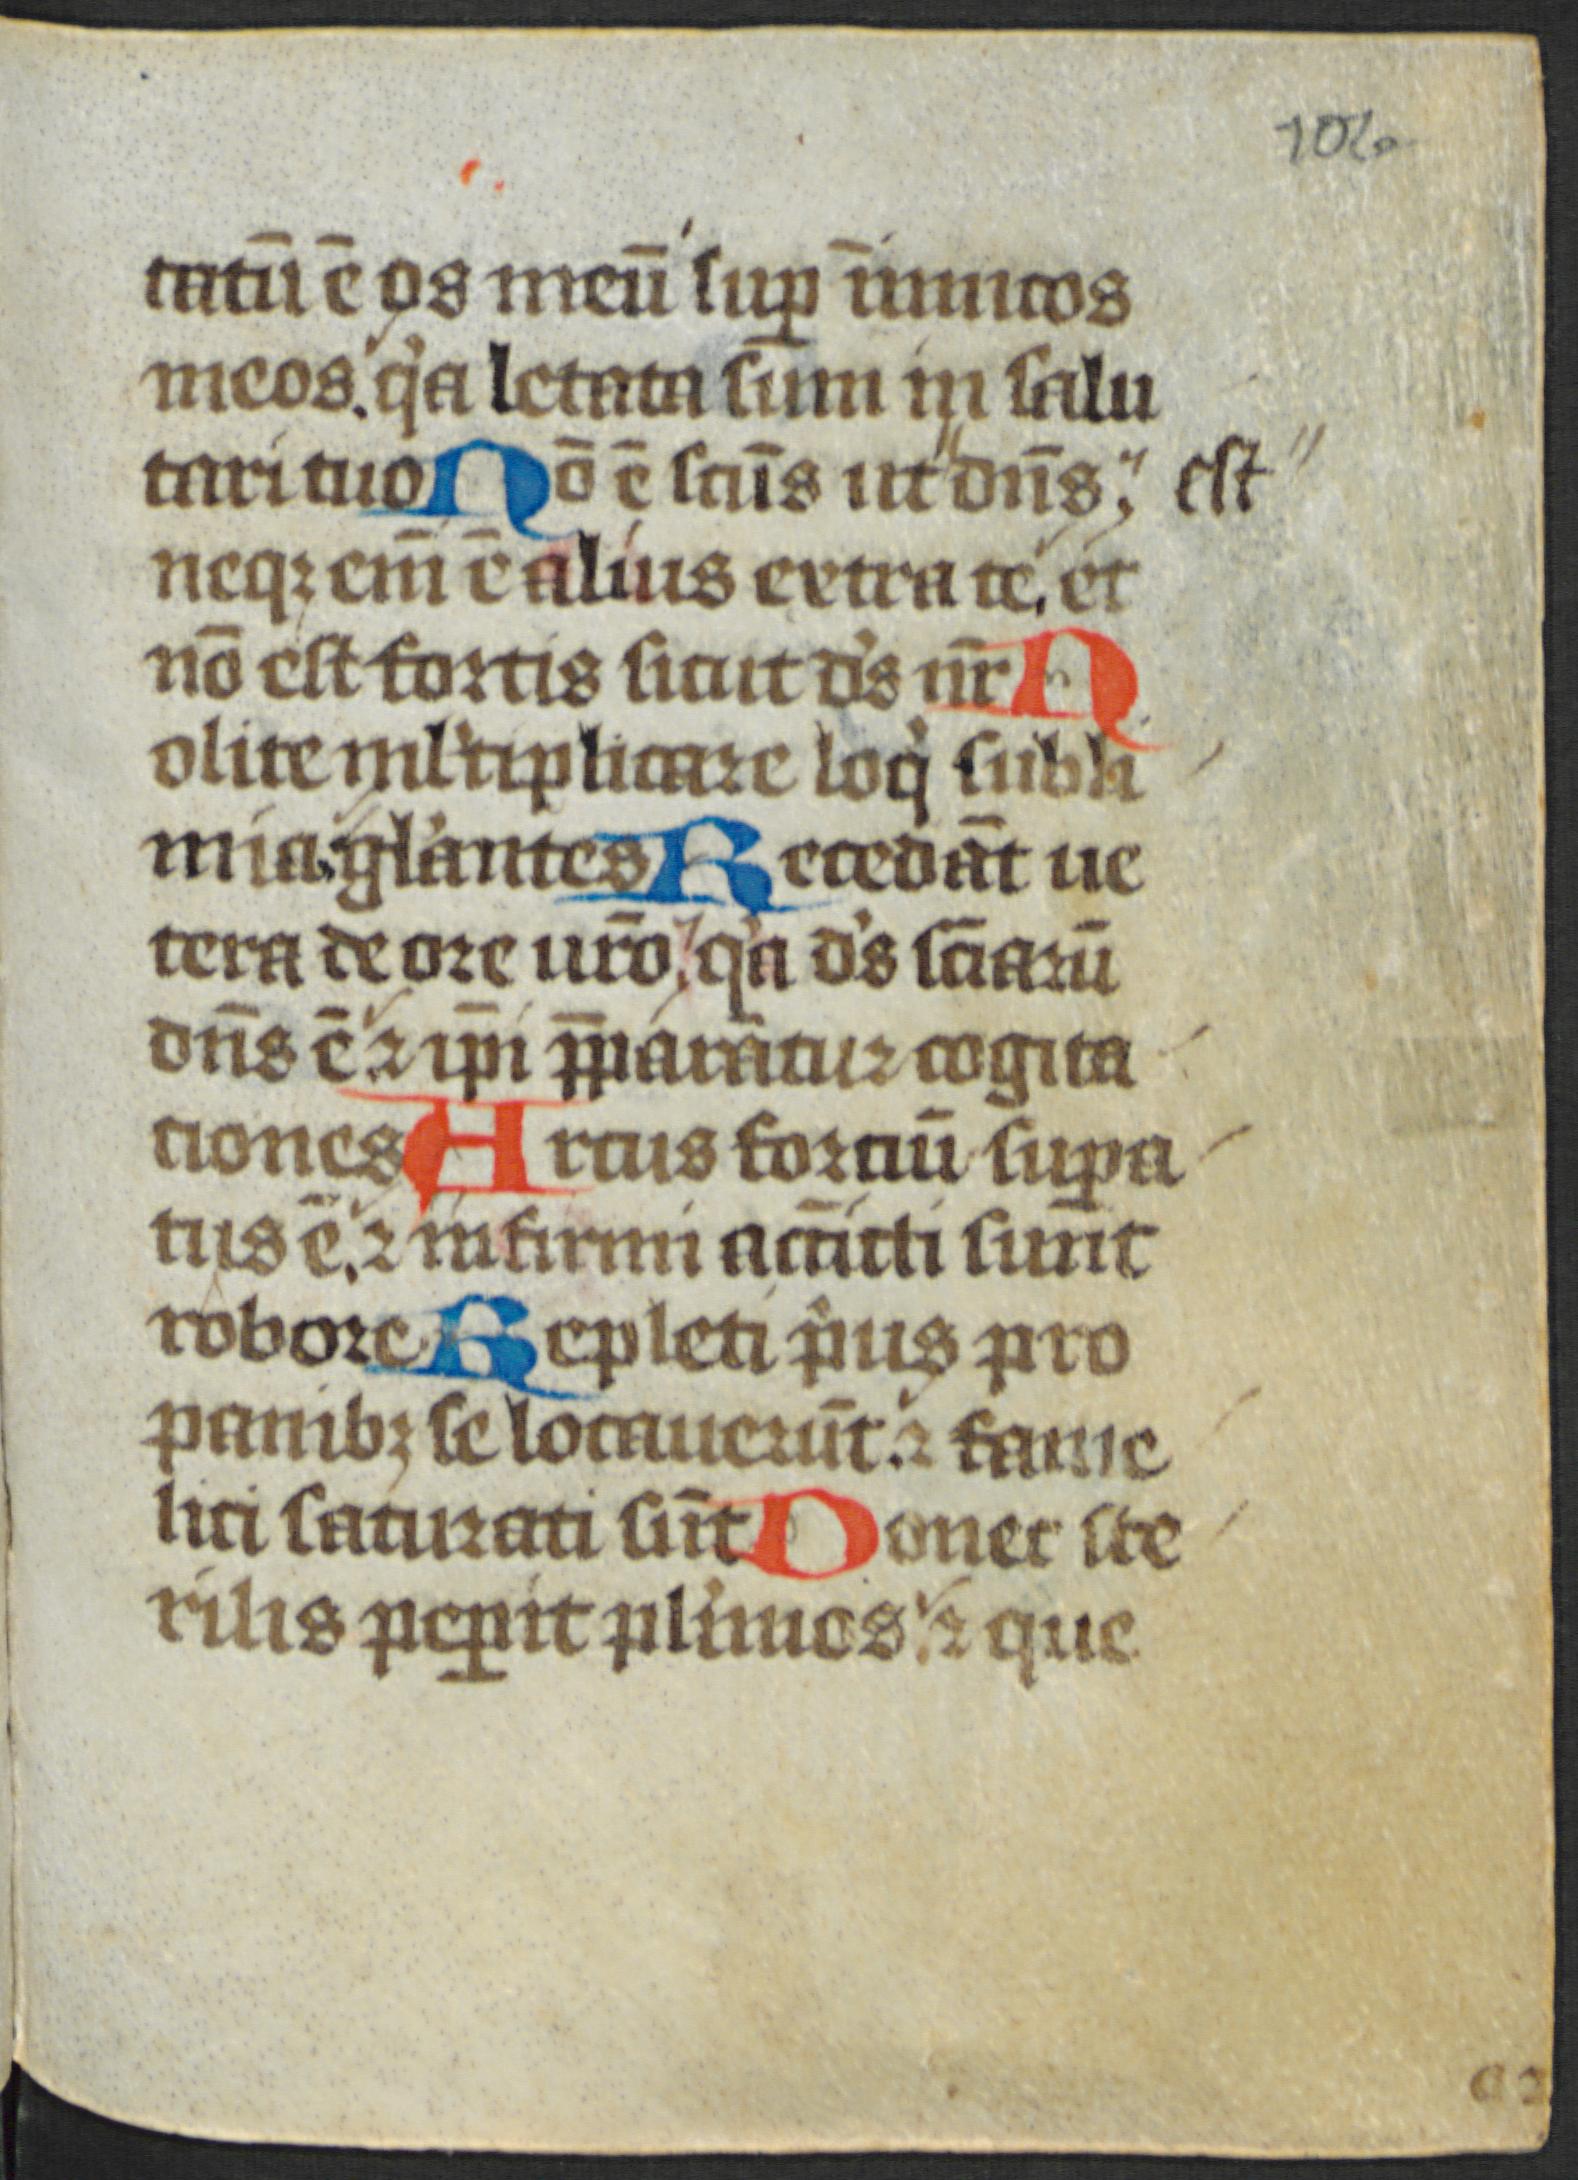 102
tatū ē os meū sup īimicos
meos. qͥa letata sum in salu
tari tuo Nō ē scūs ut dn̄s; est
neqꝫ em̄ ē alius extra te, et
nō est fortis sicut dʼs nr̄ N
olite ml̓tiplicare loqͥ subli
mia gl̓antes Recedāt ue
tera de ore ur̄o, qͥa dʼs sciarū
dn̄s ē. ꝛ ip̄i p̄parātur cogita
tiones Arcus fortiū suꝑa
tus ē. ꝛ infirmi accīcti sunt
robore Repleti pͥus pro
panibꝫ se locauerūt. ꝛ fame
lici saturati sūt Donec ste
rilis peꝑit pl̓imos. ꝛ que